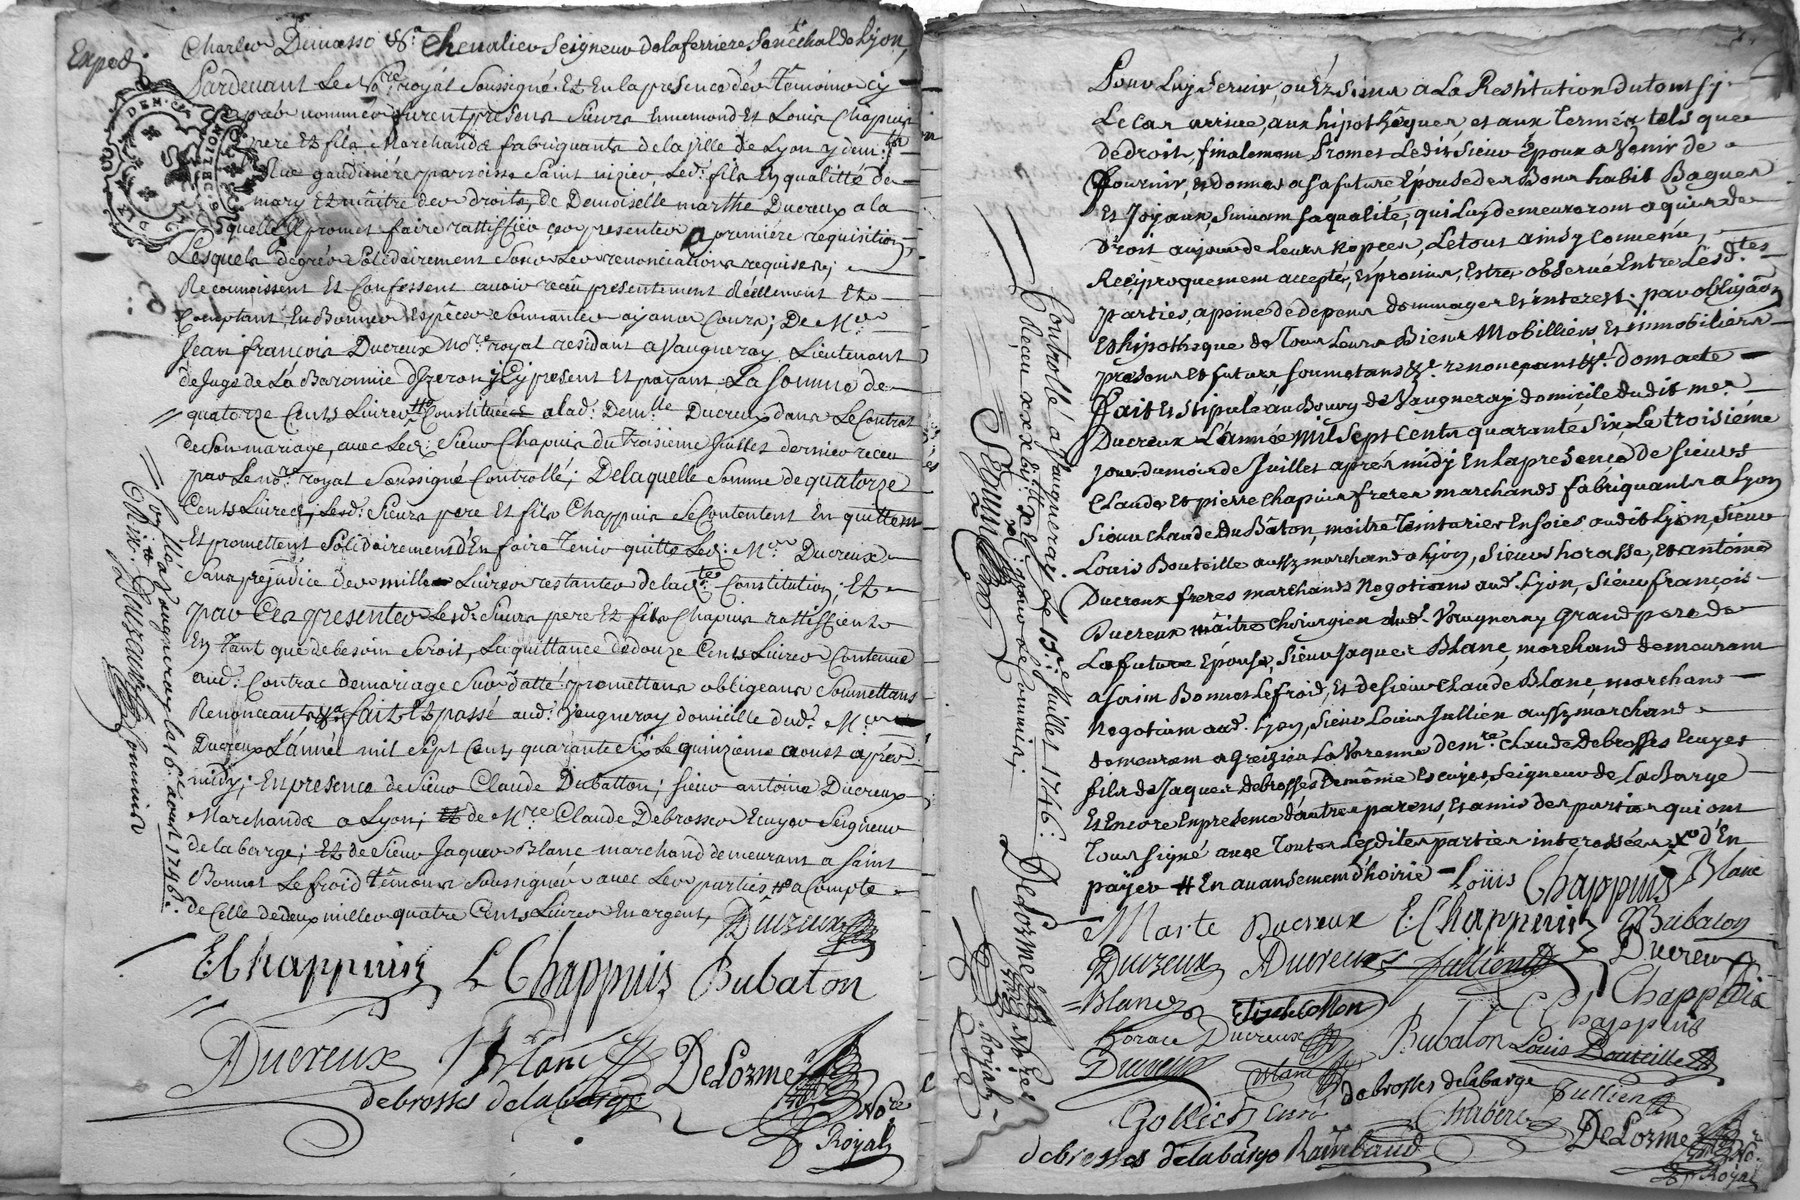 Exped.
Charles Demasso &a. Chevalier Seigneur delaferriere Senéchal de Lyon,
Pardevant Le Nre. royal Soussigné Et En la presence dés têmoins cy
aprés nommés furent presens Sieurs Ennemond Et Louis Chapuis
pere Et fils Marchands fabriquants de la ville de Lyon y dem.ts
Rue gaudiniére parroisse Saint nizier, Led.: fils En qualitté de
mary Et maître des droits, de Demoiselle marthe Ducreux a la
quelle Il promet faire rattiffier ces presentes a premiere requisition,
Lesquels de gré Solidairement Sous Les renonciations requises,
Reconnoissent Et Confessent avoir recû presentement Réellement Et
Comptant En Bonnes Espéces Sonnantes ayans Cours; De Mre
Jean françois Ducreux nore. royal residant a Vaugneray Lieutenant
de Juge de La Baronnie d'Yzeron Icy present Et payant La Somme de
quatorze Cents Livres Constituée a lad.: Demlle Ducreux dans Le Contrat
de Son mariage, avec Led.: Sieur Chapuis du troisième Juillet dernier receu
par Le nore. royal Soussigné Controllé; De laquelle Somme de quatorze
Cents Livres, Lesd.: Sieurs pere Et fils Chappuis Se Contentent En quittent
Et promettent Solidairement d'En faire Tenir quitte Led.: Mre Ducreux
Sans préjudice des mille Livres restantes de lad.te Constitution; Et
par Ces presentes Lesd.: Sieurs pere Et fils Chapuis rattiffient
En Tant que de besoin Seroit, La quittance de douze Cents Livres Contenue
aud.: Contrac de mariage Sus datté; promettans obligeans Soumettans
Renonceants &a. fait Et passé aud.: Vaugneray domicille dud.: Mre
Ducreux L'année mil Sept Cents quarante Six Le quinzieme aoust aprés
midy; En presence de Sieur Claude Dubatton; Sieur antoine Ducreux
Marchands a Lyon; Et de Mre Claude Debrosses Ecuyer Seigneur
de la barge; Et de Sieur Jaques Blanc marchand demeurant a Saint
Bonnet Le froid têmoins Soussignés avec Les parties # a Compte
de Celle de deux milles quatre Cents Livres En argent, Ducreux
E. Chappuis L Chappuis Bubaton
ADucreux Blanc DeLorme Nore Royal
debrosses delabarge
Conlle. a Vaugneray Le 16. aoust 1746.
Delorme Commis
Pour Luy Servir, ou Ez Siens a La Restitution du tout Sy
Le Cas arrive, aux hipothéques et aux Termes, tels que
de droit, finalement Promet Ledit Sieur Epoux a Venir de
fournir, et donner a Sa future Epouse des Bons habit Bagues
Et Joyaux, Suivant Sa qualité, qui Luy demeureront aquis de
Droit au jour de Leurs Nopces, Le tout ainsy Convenu,
Reçiproquement accepté, Et promis, Estre observé Entre Lesd.tes
parties, a peine de depens dommages Et interest; par obligaon
Et hipotheque de Tous Leurs Biens Mobilliers, Et immobiliers
presens et futurs Soumetans &a. renonçeants &a. dont acte
Fait Et Stipulé au Bourg de Vaugneray domicile dudit mre
Ducreux L'année mil Sept Cents quarante Six, Le troisiéme
jour du mois de Juillet aprés midy En La presence de Sieurs
Claude Et pierre Chapuis freres marchands fabriquants a Lyon
Sieur Claude Du Bâton, maître Teinturier En Soies audit Lyon, Sieur
Louis Bouteille aussy marchand a Lyon, Sieurs horasse, et antoine
Ducreux freres marchands Negotians aud.: Lyon, Sieur françois
Ducreux maître Chirurgien aud.: Vaugneray Grand pere de
La future Epouse, Sieur Jaques Blanc, marchand demeurant
a Saint Bonnet Le froid, Et de Sieur Claude Blanc, marchand
Negotiant aud.: Lyon, Sieur Louis Jullien aussy marchand
demeurant a Grezieu La Varenne de mre. Claude Debrosses Ecuyer
fils de Jaques debrosses Ecuyer, Seigneur de La Barge
Et Encore En presence d'autres parens, Et amis des parties qui ont
Tous Signé avec Toutes Lesdites parties interessées, d'En
payer # En avansement d'hoirie - Loüis Chappuis Blanc
Marte Ducreux E. Chappuis Bubaton
Ducreux ADucreux Jullien Ducreux
Blanc C Chappuis
horace Ducreux Chappuis
Ducreux Blanc Bubaton Louis Bouteille
debrosses delabarge Jullien
Chabert DeLorme No.re Royal
debrosses delabarge Raimbaud
Controllé a Vaugneray Le 15e. Juillet 1746:
DeLorme Nore. Royal